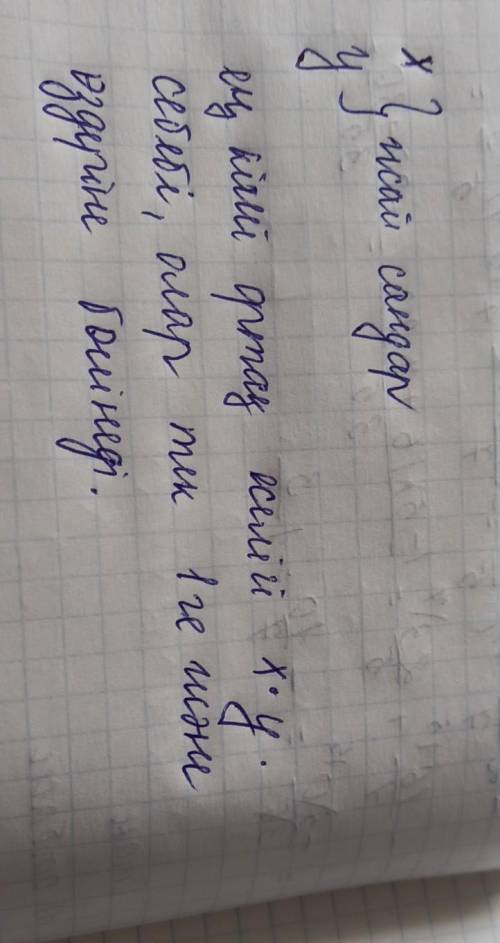 x
y } жай сандар
ең кіші ортақ еселігі x·y.
себебі, олар тек 1ге және
өздеріне бөлінеді.